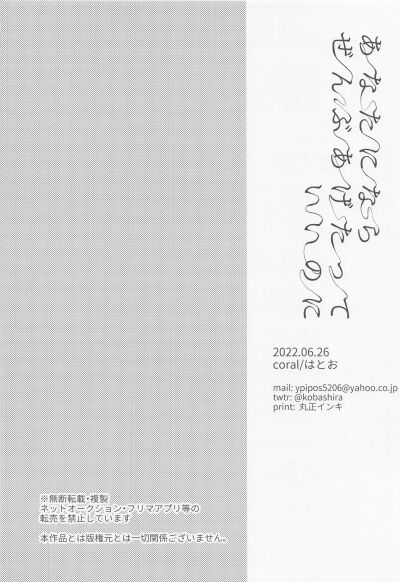 あなたになら
ぜんぶあげたって
いいのに
2022.06.26
coral/はとお
mail: ypipos5206@yahoo.co.jp
twtr: @kobashira
print: 丸正インキ
※無断転載・複製
ネットオークション・フリマアプリ等の
転売を禁止しています
本作品とは版権元とは一切関係ございません。